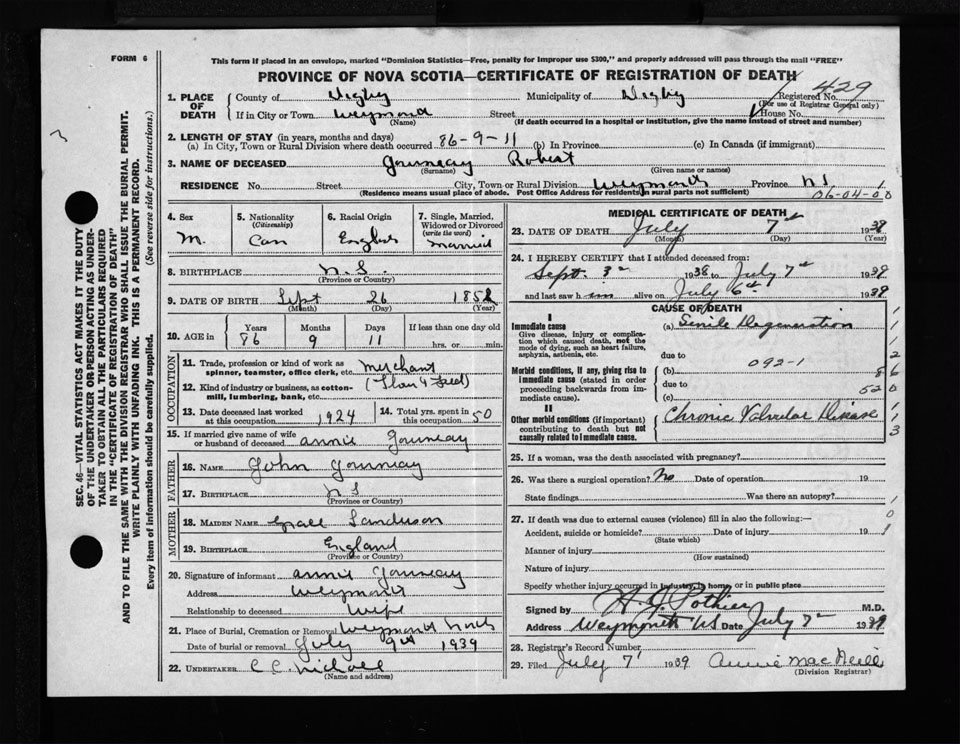 FORM 6
This form if placed in an envelope, marked "Dominion Statistics—Free, penalty for improper use $300," and properly addressed will pass through the mail "FREE"
PROVINCE OF NOVA SCOTIA—CERTIFICATE OF REGISTRATION OF DEATH
429
1. PLACE OF DEATH County of Digby Municipality of Digby Registered No.
(For use of Registrar General only)
If in City or Town Weymouth Street House No.
(Name) (If death occurred in a hospital or institution, give the name instead of street and number)
2. LENGTH OF STAY (in years, months and days)
(a) In City, Town or Rural Division where death occurred 86-9-11 (b) In Province (c) In Canada (if immigrant)
3. NAME OF DECEASED Journeay Robert
(Surname) (Given name or names)
RESIDENCE No. Street City, Town or Rural Division Weymouth Province N.S.
(Residence means usual place of abode. Post Office Address for residents in rural parts not sufficient)
06-04-00
4. Sex M.
5. Nationality (Citizenship) Can
6. Racial Origin English
7. Single, Married, Widowed or Divorced (write the word) Married
8. BIRTHPLACE N.S.
(Province or Country)
9. DATE OF BIRTH Sept 26 1852
(Month) (Day) (Year)
10. AGE in Years Months Days If less than one day old
86 9 11 hrs. or min.
OCCUPATION
11. Trade, profession or kind of work as spinner, teamster, office clerk, etc. Merchant
12. Kind of industry or business, as cotton-mill, lumbering, bank, etc. (Flour & Feed)
13. Date deceased last worked at this occupation 1924
14. Total yrs. spent in this occupation 50
15. If married give name of wife or husband of deceased Annie Journeay
FATHER
16. NAME John Journeay
17. BIRTHPLACE N.S.
(Province or Country)
MOTHER
18. MAIDEN NAME Grace Sanderson
19. BIRTHPLACE England
(Province or Country)
20. Signature of informant Annie Journeay
Address Weymouth
Relationship to deceased Wife
21. Place of Burial, Cremation or Removal Weymouth North
Date of burial or removal July 9th 1939
22. UNDERTAKER C.C.
(Name and address)
MEDICAL CERTIFICATE OF DEATH
23. DATE OF DEATH July 7th 1939
(Month) (Day) (Year)
24. I HEREBY CERTIFY that I attended deceased from:
Sept. 3rd 1938 to July 7th 1939
and last saw him alive on July 6th 1939
CAUSE OF DEATH
I
Immediate cause
Give disease, injury or complication which caused death, not the mode of dying, such as heart failure, asphyxia, asthenia, etc.
(a) Senile Degeneration
due to
Morbid conditions, if any, giving rise to immediate cause (stated in order proceeding backwards from immediate cause).
(b) 092-1
due to
(c)
II
Other morbid conditions (if important) contributing to death but not causally related to immediate cause.
Chronic Valvular Disease
25. If a woman, was the death associated with pregnancy?
26. Was there a surgical operation? No Date of operation 19
State findings Was there an autopsy?
27. If death was due to external causes (violence) fill in also the following:—
Accident, suicide or homicide? Date of injury 19
(State which)
Manner of injury
(How sustained)
Nature of injury
Specify whether injury occurred in industry, in home, or in public place
Signed by Pothier M.D.
Address Weymouth NS Date July 7th 1939
28. Registrar's Record Number
29. Filed July 7 1939 Annie MacNeill
(Division Registrar)
SEC. 46—VITAL STATISTICS ACT MAKES IT THE DUTY
OF THE UNDERTAKER OR PERSON ACTING AS UNDER-
TAKER TO OBTAIN ALL THE PARTICULARS REQUIRED
IN THE "CERTIFICATE OF REGISTRATION OF DEATH"
AND TO FILE THE SAME WITH THE DIVISION REGISTRAR WHO SHALL ISSUE THE BURIAL PERMIT.
WRITE PLAINLY WITH UNFADING INK. THIS IS A PERMANENT RECORD.
Every item of information should be carefully supplied. (See reverse side for instructions.)